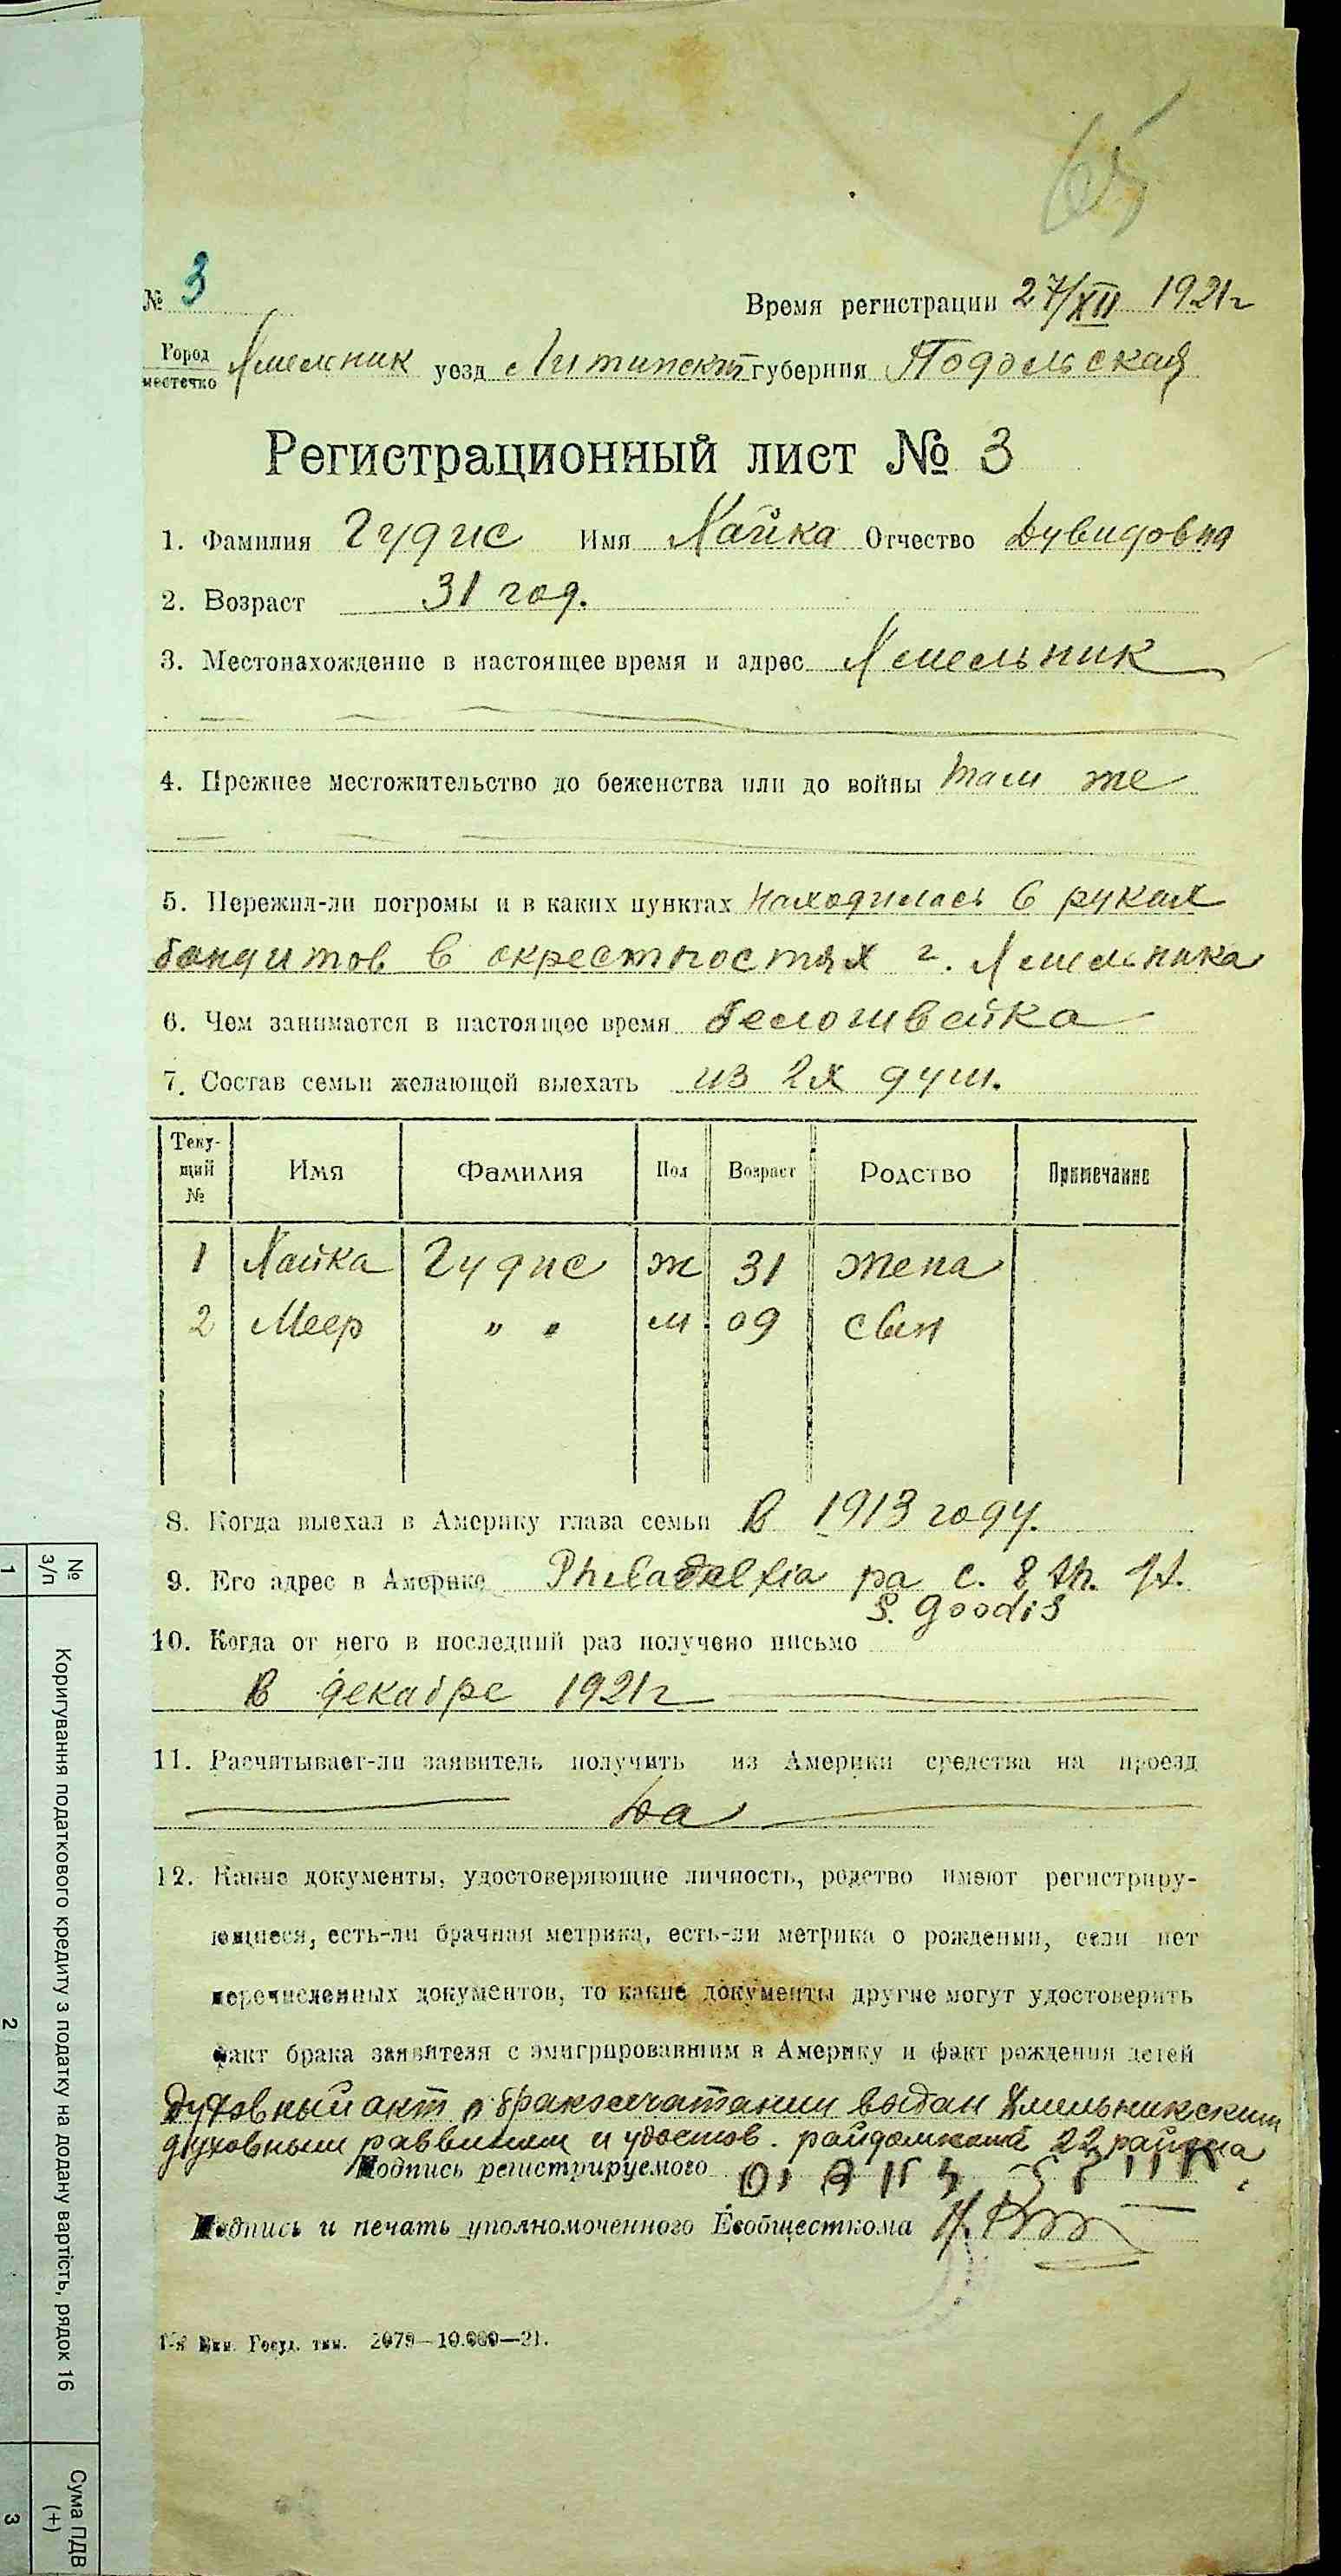 65
№ 3
Время регистрации 27/XII 1921г
Город
местечко Хмельник уезд Литинский губерния Подольская
Регистрационный лист № 3
1. Фамилия Гудис Имя Хайка Отчество Дувидовна
2. Возраст 31 год.
3. Местонахождение в настоящее время и адрес Хмельник
4. Прежнее местожительство до беженства или до войны там же
5. Пережил-ли погромы и в каких пунктах находилась в руках
бандитов в окрестностях г. Хмельника
6. Чем занимается в настоящее время белошвейка
7. Состав семьи желающей выехать из 2х душ.
Теку-
щий
№ Имя Фамилия Пол Возраст Родство Примечание
1 Хайка Гудис ж 31 жена
2 Меер " " м. 09 сын
8. Когда выехал в Америку глава семьи В 1913 году.
9. Его адрес в Америке Philadelfia pa c. 8 th. St.
S. Goodis
10. Когда от него в последний раз получено письмо
В декабре 1921г
11. Расчитывает-ли заявитель получить из Америки средства на проезд
Да
12. Какие документы, удостоверяющие личность, родство имеют регистриру-
ющиеся, есть-ли брачная метрика, есть-ли метрика о рождении, если нет
перечисленных документов, то какие документы другие могут удостоверить
факт брака заявителя с эмигрировавшим в Америку и факт рождения детей
Духовный акт о бракосочатании выдан Хмельникским
духовным раввином и удостов. 22 района
Подпись регистрируемого
Подпись и печать уполномоченного Евобщесткома
Госуд. тип. 2079—10.000—21.
№
з/п Коригування податкового кредиту з податку на додану вартість, рядок 16 Сума ПДВ
(+)
1 2 3